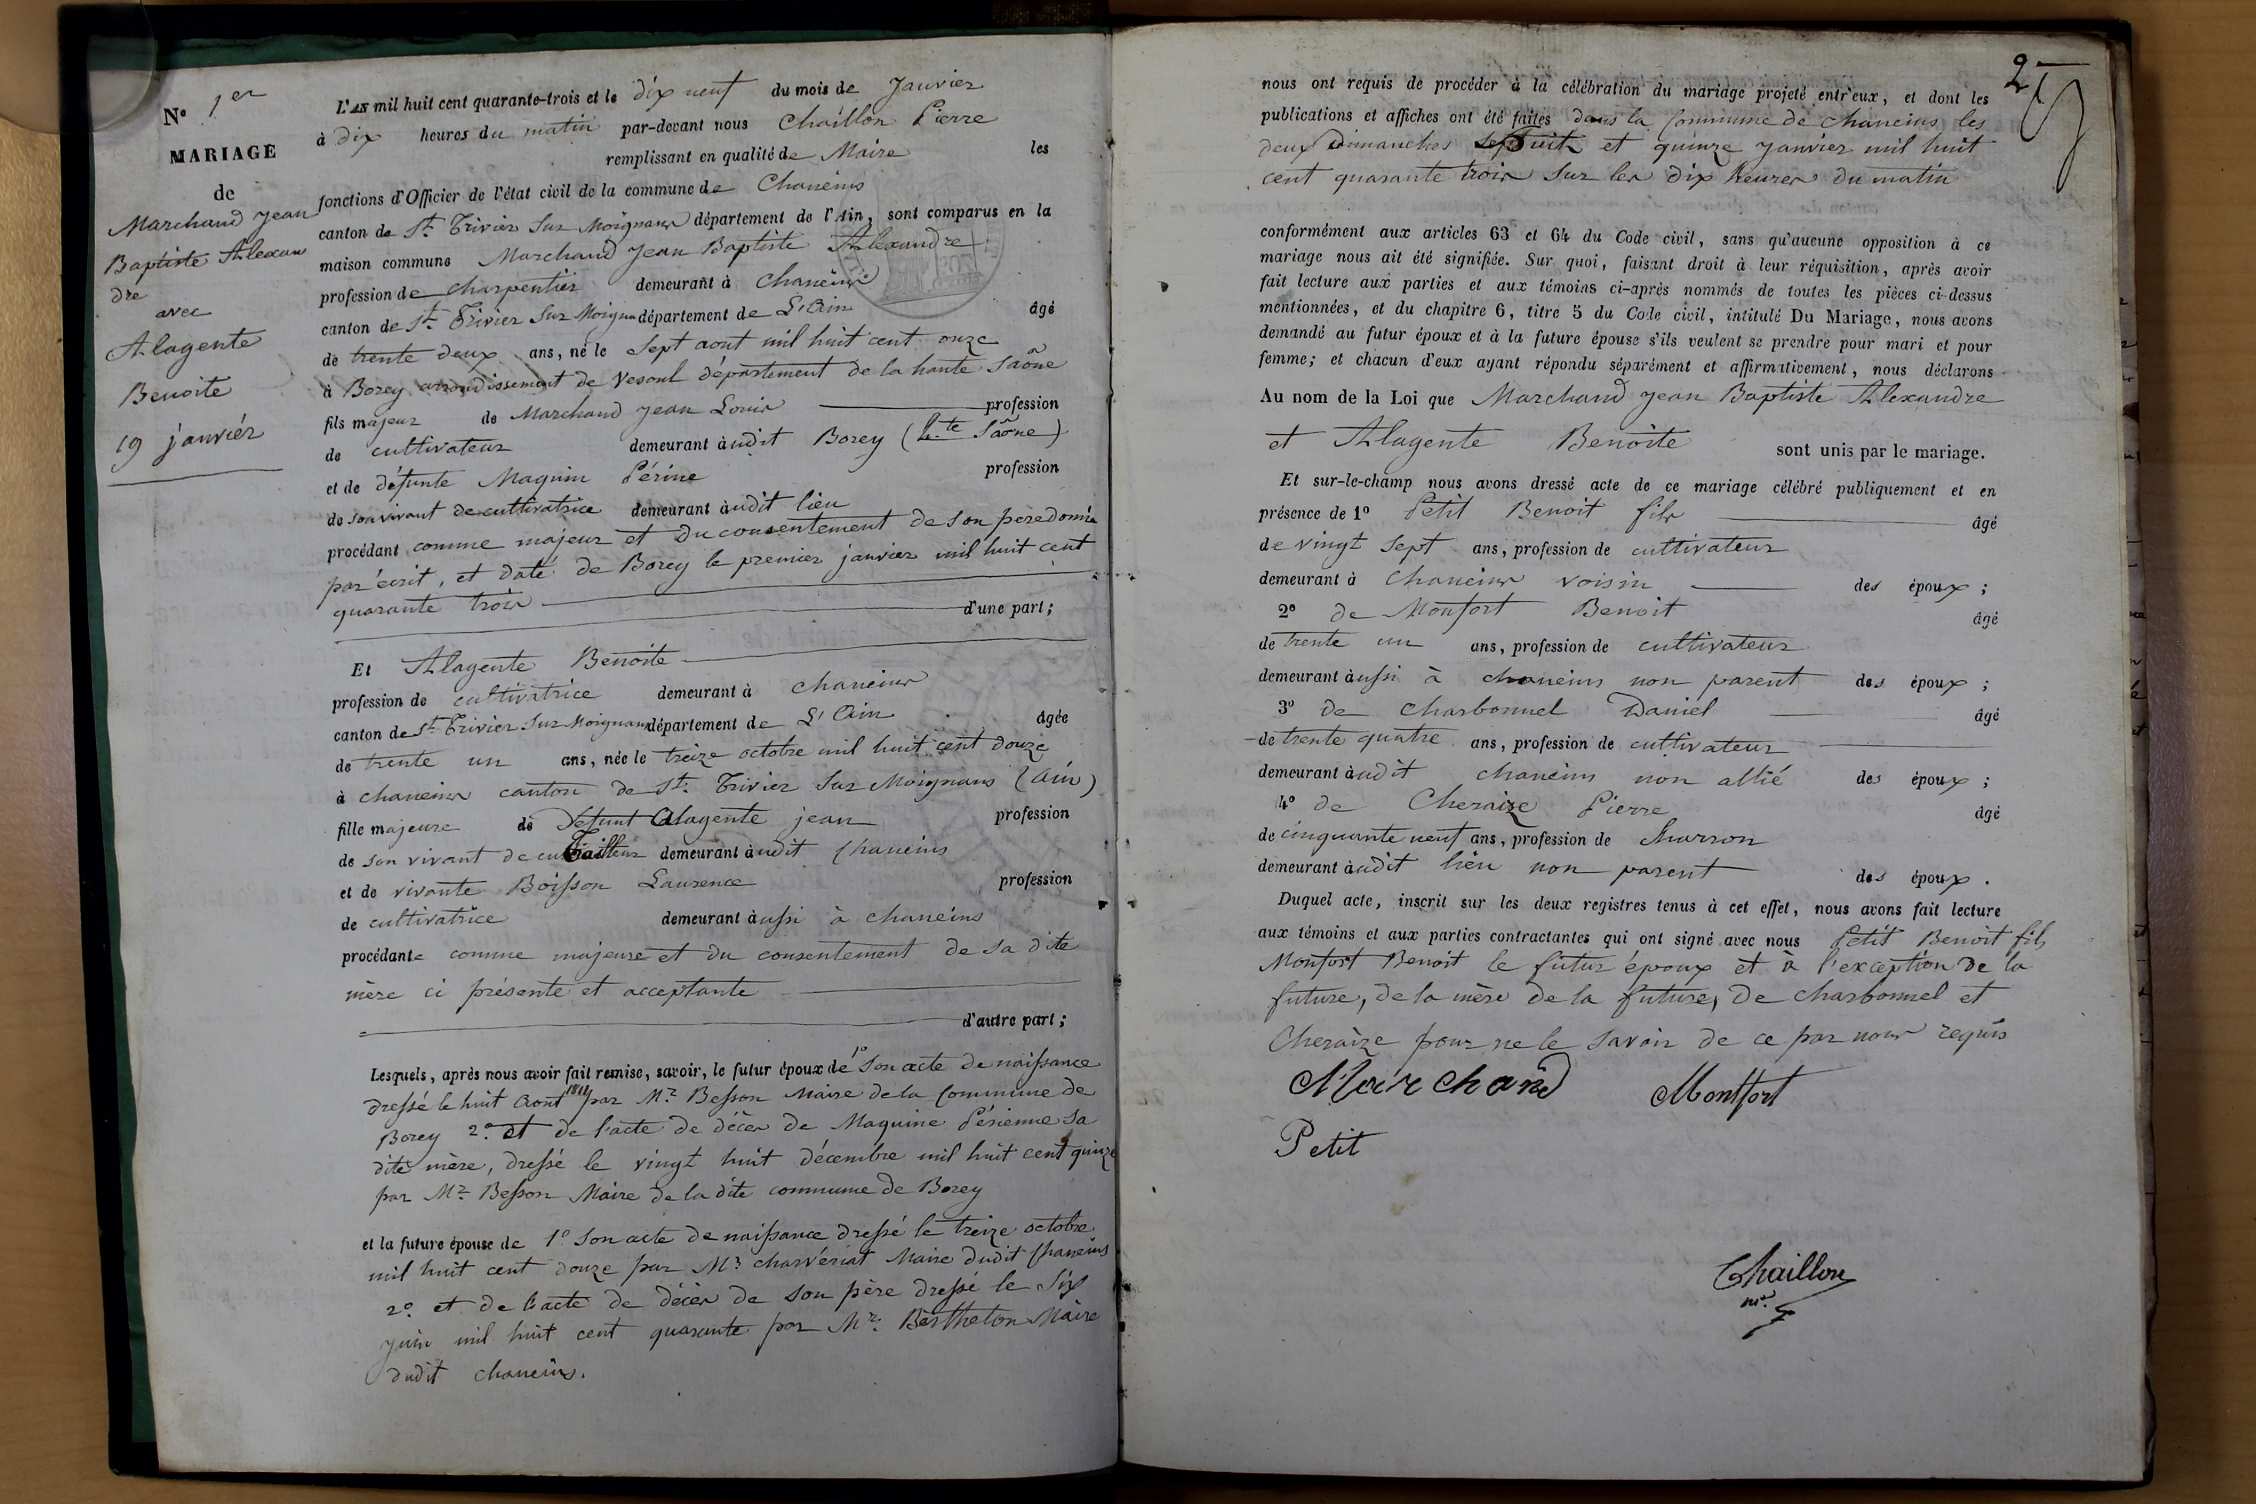 N° 1er
MARIAGE
de
Marchand Jean
Baptiste Alexan
dre
avec
Alagente
Benoite
19 janvier
L'AN mil huit cent quarante-trois et le dix neuf du mois de Janvier
à dix heures du matin par-devant nous Chaillon Pierre
remplissant en qualité de Maire les
fonctions d'Officier de l'état civil de la commune de Chaneins
canton de St. Trivier Sur Moignans département de l'Ain, sont comparus en la
maison commune Marchand Jean Baptiste Alexandre
profession de charpentier demeurant à Chaneins
canton de St. Trivier Sur Moignan département de L'Ain âgé
de trente deux ans, né le Sept aout mil huit cent onze
à Borey arrondissement de Vesoul département de la haute Saône
fils majeur de Marchand Jean Louis profession
de cultivateur demeurant àudit Borey (hte Saône)
et de défunte Maguin Périne profession
de son vivant de cultivatrice demeurant àudit lieu
procédant comme majeur et du consentement de son père donné
par écrit, et daté de Borey le premier janvier mil huit cent
quarante trois d'une part;
Et Alagente Benoite
profession de cultivatrice demeurant à Chaneins
canton de St. Trivier Sur Moignans département de L'Ain âgée
de trente un ans, née le treize octobre mil huit cent douze
à chaneins canton de St. Trivier Sur Moignans (Ain)
fille majeure de Defunt Alagente jean profession
de son vivant de Tailleur demeurant àudit Chaneins
et de vivante Boisson Laurence profession
de cultivatrice demeurant àussi à chaneins
procédante comme majeure et du consentement de sa dite
mère ci présente et acceptante
d'autre part;
Lesquels, après nous avoir fait remise, savoir, le futur époux de 1° Son acte de naissance
dressé le huit Aout 1811 par Mr Besson Maire de la Commune de
Borey 2° et de l'acte de décès de Maguine Périenne sa
dite mère, dressé le vingt huit décembre mil huit cent quinze
par Mr Besson Maire de la dite commune de Borey
et la future épouse de 1° Son acte de naissance dressé le treize octobre
mil huit cent douze par Mr charvériat Maire dudit Chaneins
2° et de l'acte de décès de son père dressé le Six
juin mil huit cent quarante par Mr. Bertheton Maire
dudit chaneins.
2
nous ont requis de procéder à la célébration du mariage projeté entr'eux, et dont les
publications et affiches ont été faites dans la Commune de chaneins les
deux Dimanches huit et quinze janvier mil huit
cent quarante trois sur les dix heures du matin
conformément aux articles 63 et 64 du Code civil, sans qu'aucune opposition à ce
mariage nous ait été signifiée. Sur quoi, faisant droit à leur réquisition, après avoir
fait lecture aux parties et aux témoins ci-après nommés de toutes les pièces ci-dessus
mentionnées, et du chapitre 6, titre 5 du Code civil, intitulé Du Mariage, nous avons
demandé au futur époux et à la future épouse s'ils veulent se prendre pour mari et pour
femme; et chacun d'eux ayant répondu séparément et affirmativement, nous déclarons
Au nom de la Loi que Marchand Jean Baptiste Alexandre
et Alagente Benoite sont unis par le mariage.
Et sur-le-champ nous avons dressé acte de ce mariage célébré publiquement et en
présence de 1° Petit Benoit fils âgé
de vingt Sept ans, profession de cultivateur
demeurant à Chaneins voisin des époux;
2° de Monfort Benoit âgé
de trente un ans, profession de cultivateur
demeurant àussi à chaneins non parent des époux;
3° de Charbonnel Daniel âgé
de trente quatre ans, profession de cultivateur
demeurant àudit chaneins non allié des époux;
4° de Cheraize Pierre âgé
de cinquante neuf ans, profession de Charron
demeurant àudit lieu non parent des époux.
Duquel acte, inscrit sur les deux registres tenus à cet effet, nous avons fait lecture
aux témoins et aux parties contractantes qui ont signé avec nous Petit Benoit fils
Monfort Benoit le futur époux et à l'exception de la
future, de la mère de la future, de charbonnel et
Cheraize pour ne le savoir de ce par nous requis
Marchand Montfort
Petit
Chaillon
me.